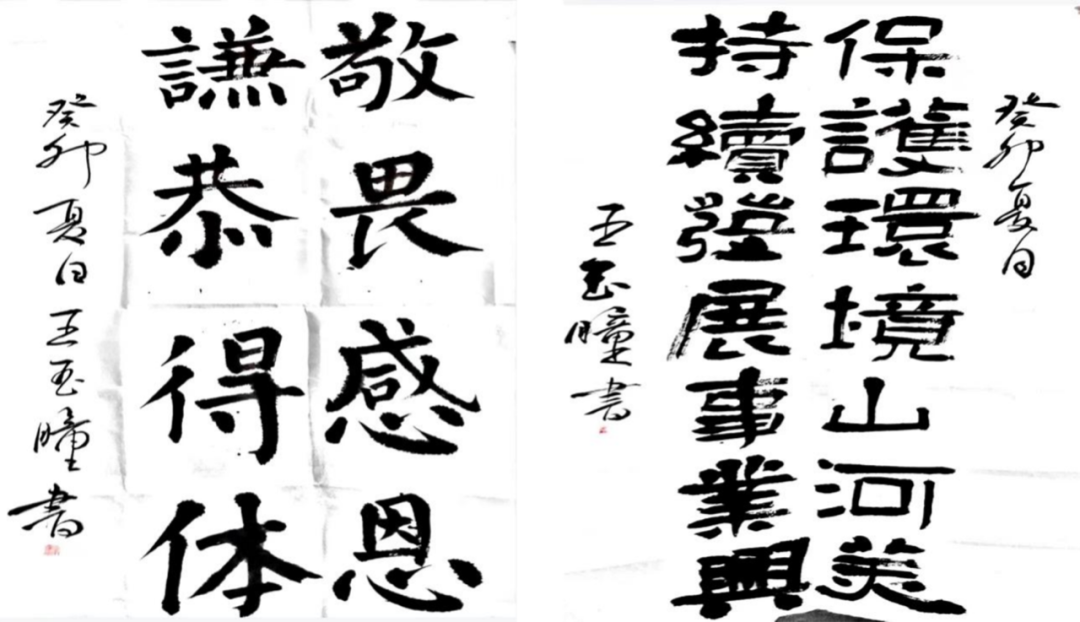 敬畏感恩
謙恭得体
癸卯夏日王玉瞳書
癸卯夏日
保護環境山河美
持續發展事業興
王玉瞳書